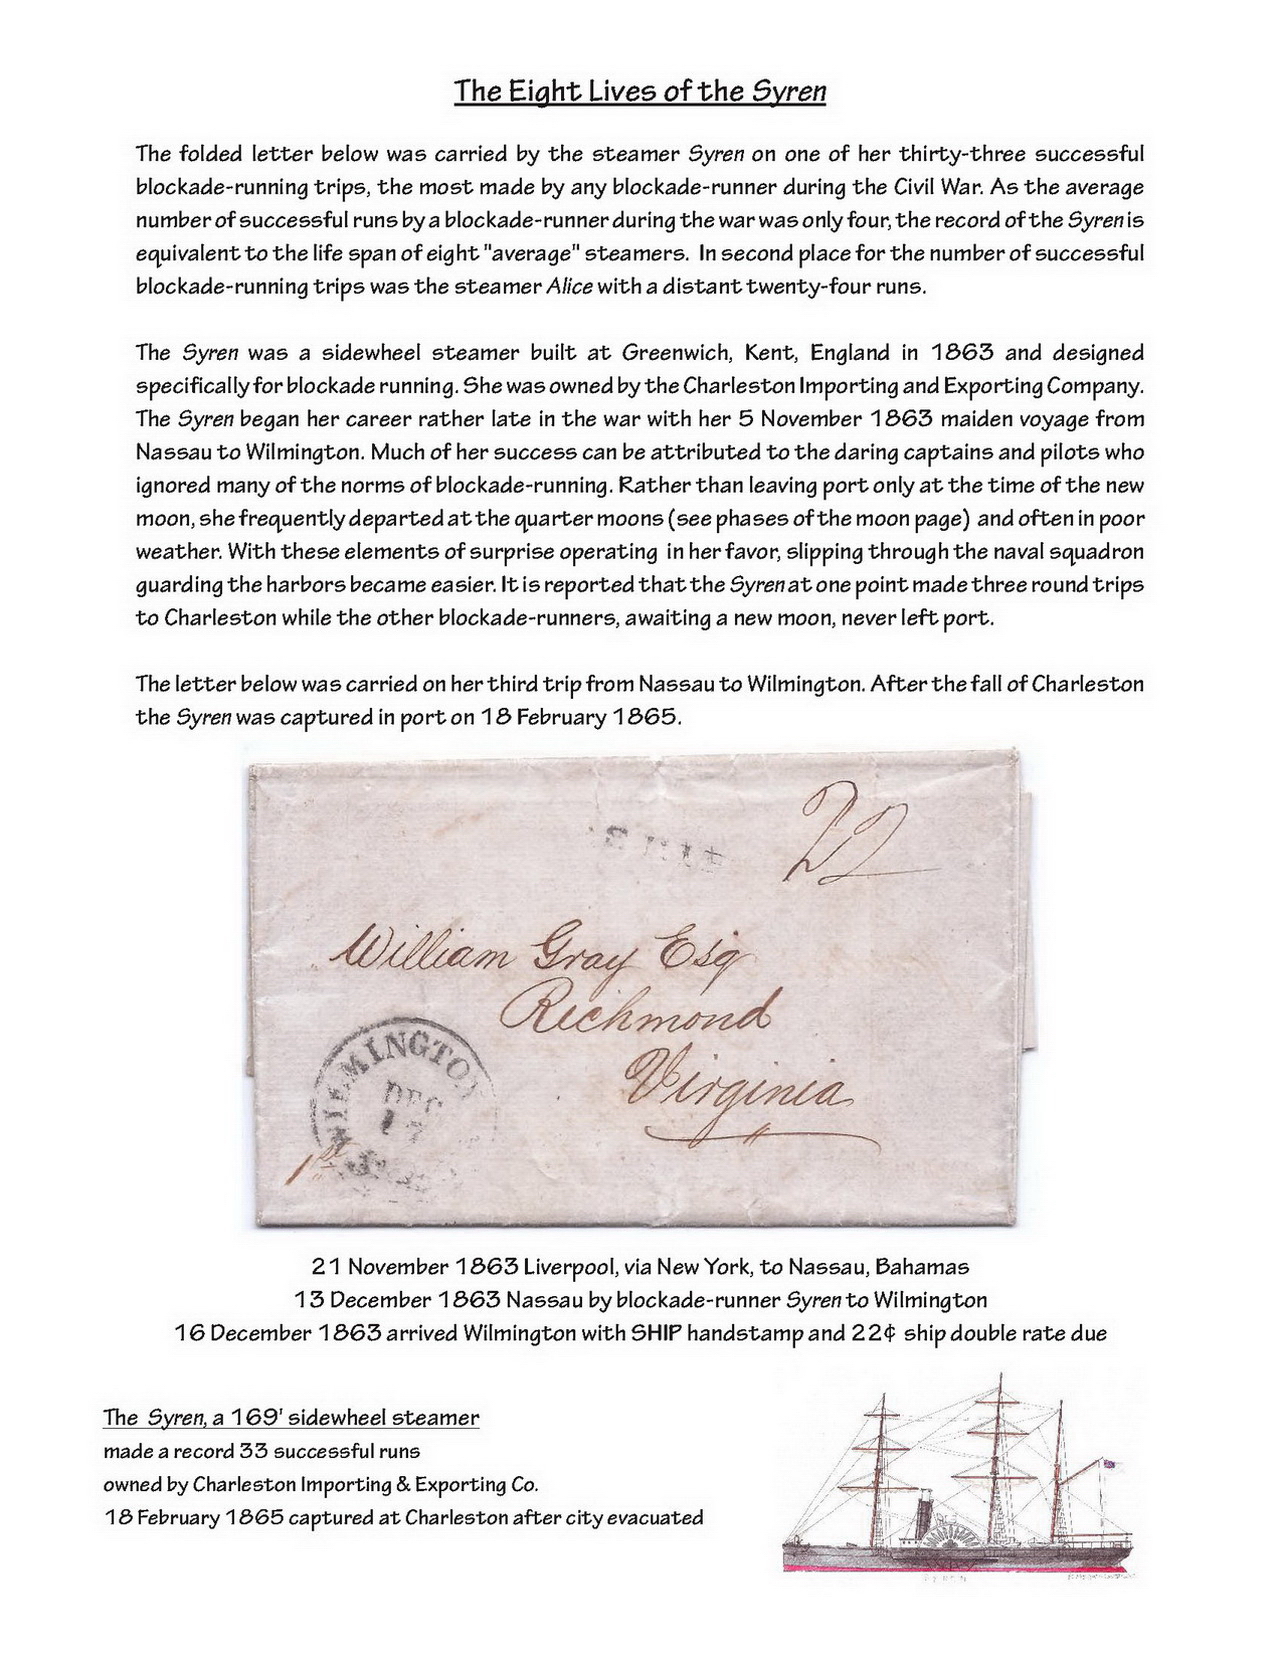 The Eight Lives of the Syren
The folded letter below was carried by the steamer Syren on one of her thirty-three successful
blockade-running trips, the most made by any blockade-runner during the Civil War. As the average
number of successful runs by a blockade-runner during the war was only four, the record of the Syren is
equivalent to the life span of eight "average" steamers. In second place for the number of successful
blockade-running trips was the steamer Alice with a distant twenty-four runs.
The Syren was a sidewheel steamer built at Greenwich, Kent, England in 1863 and designed
specifically for blockade running. She was owned by the Charleston Importing and Exporting Company.
The Syren began her career rather late in the war with her 5 November 1863 maiden voyage from
Nassau to Wilmington. Much of her success can be attributed to the daring captains and pilots who
ignored many of the norms of blockade-running. Rather than leaving port only at the time of the new
moon, she frequently departed at the quarter moons (see phases of the moon page) and often in poor
weather. With these elements of surprise operating in her favor, slipping through the naval squadron
guarding the harbors became easier. It is reported that the Syren at one point made three round trips
to Charleston while the other blockade-runners, awaiting a new moon, never left port.
The letter below was carried on her third trip from Nassau to Wilmington. After the fall of Charleston
the Syren was captured in port on 18 February 1865.
22
SHIP
William Gray Esq
Richmond
Virginia
WILMINGTON
DEC
17
1st
21 November 1863 Liverpool, via New York, to Nassau, Bahamas
13 December 1863 Nassau by blockade-runner Syren to Wilmington
16 December 1863 arrived Wilmington with SHIP handstamp and 22¢ ship double rate due
The Syren, a 169' sidewheel steamer
made a record 33 successful runs
owned by Charleston Importing & Exporting Co.
18 February 1865 captured at Charleston after city evacuated